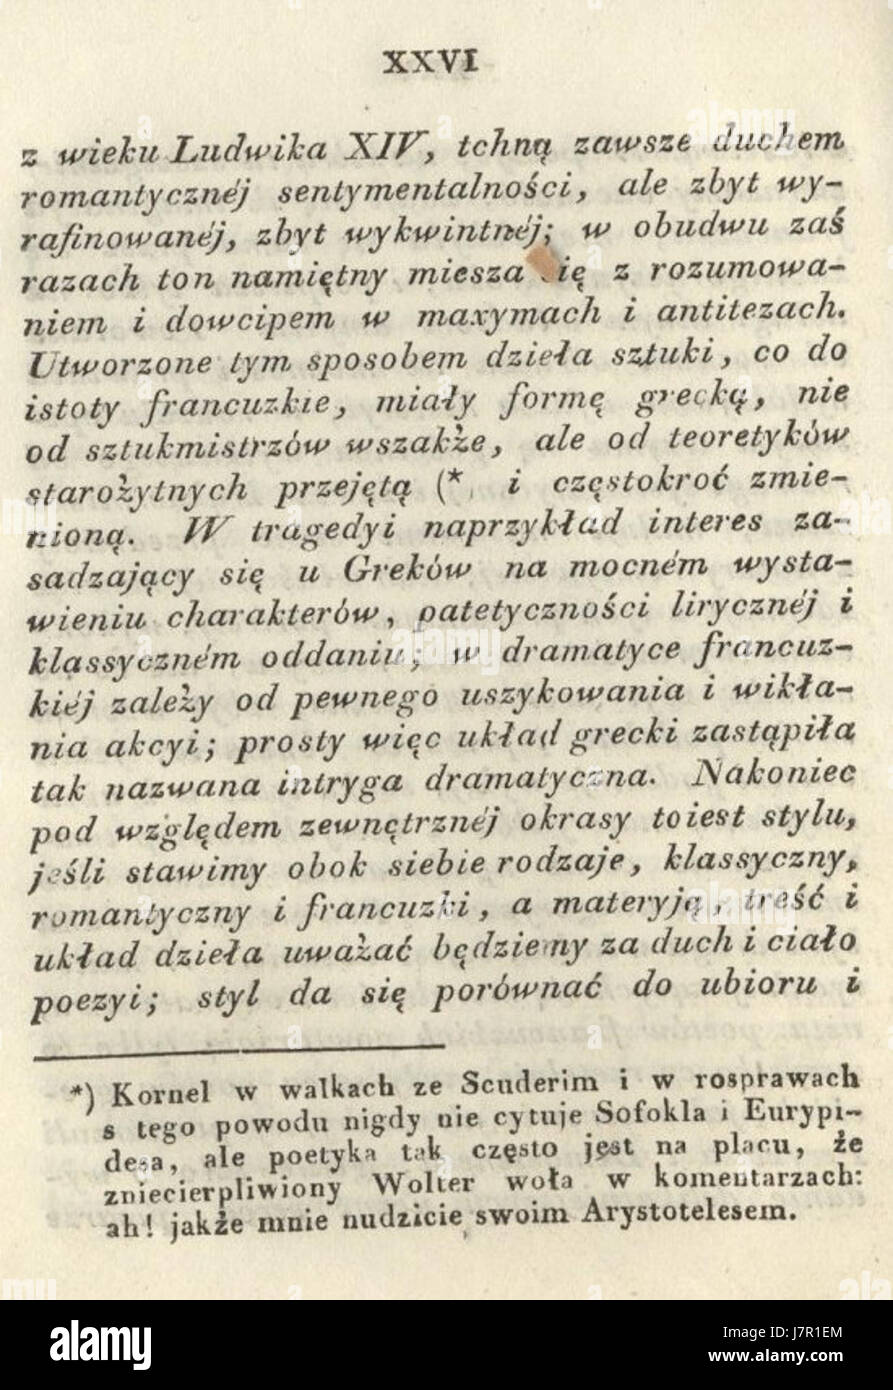 XXVI
z wieku Ludwika XIV, tchną zawsze duchem
romantycznéj sentymentalności, ale zbyt wy-
rafinowanéj, zbyt wykwintnéj; w obudwu zaś
razach ton namiętny miesza się z rozumowa-
niem i dowcipem w maxymach i antitezach.
Utworzone tym sposobem dzieła sztuki, co do
istoty francuzkie, miały formę grecką, nie
od sztukmistrzów wszakże, ale od teoretyków
starożytnych przejętą (* i częstokroć zmie-
nioną. W tragedyi naprzykład interes za-
sadzający się u Greków na mocném wysta-
wieniu charakterów, patetyczności lirycznéj i
klassyczném oddaniu; w dramatyce francuz-
kiéj zależy od pewnego uszykowania i wikła-
nia akcyi; prosty więc układ grecki zastąpiła
tak nazwana intryga dramatyczna. Nakoniec
pod względem zewnętrznéj okrasy toiest stylu,
jeśli stawimy obok siebie rodzaje, klassyczny,
romantyczny i francuzki, a materyją, treść i
układ dzieła uważać będziemy za duch i ciało
poezyi; styl da się porównać do ubioru i
*) Kornel w walkach ze Scuderim i w rosprawach
s tego powodu nigdy nie cytuje Sofokla i Eurypi-
desa, ale poetyka tak często jest na placu, że
zniecierpliwiony Wolter woła w komentarzach:
ah! jakże mnie nudzicie swoim Arystotelesem.
alamy
Image ID: J7R1EM
www.alamy.com